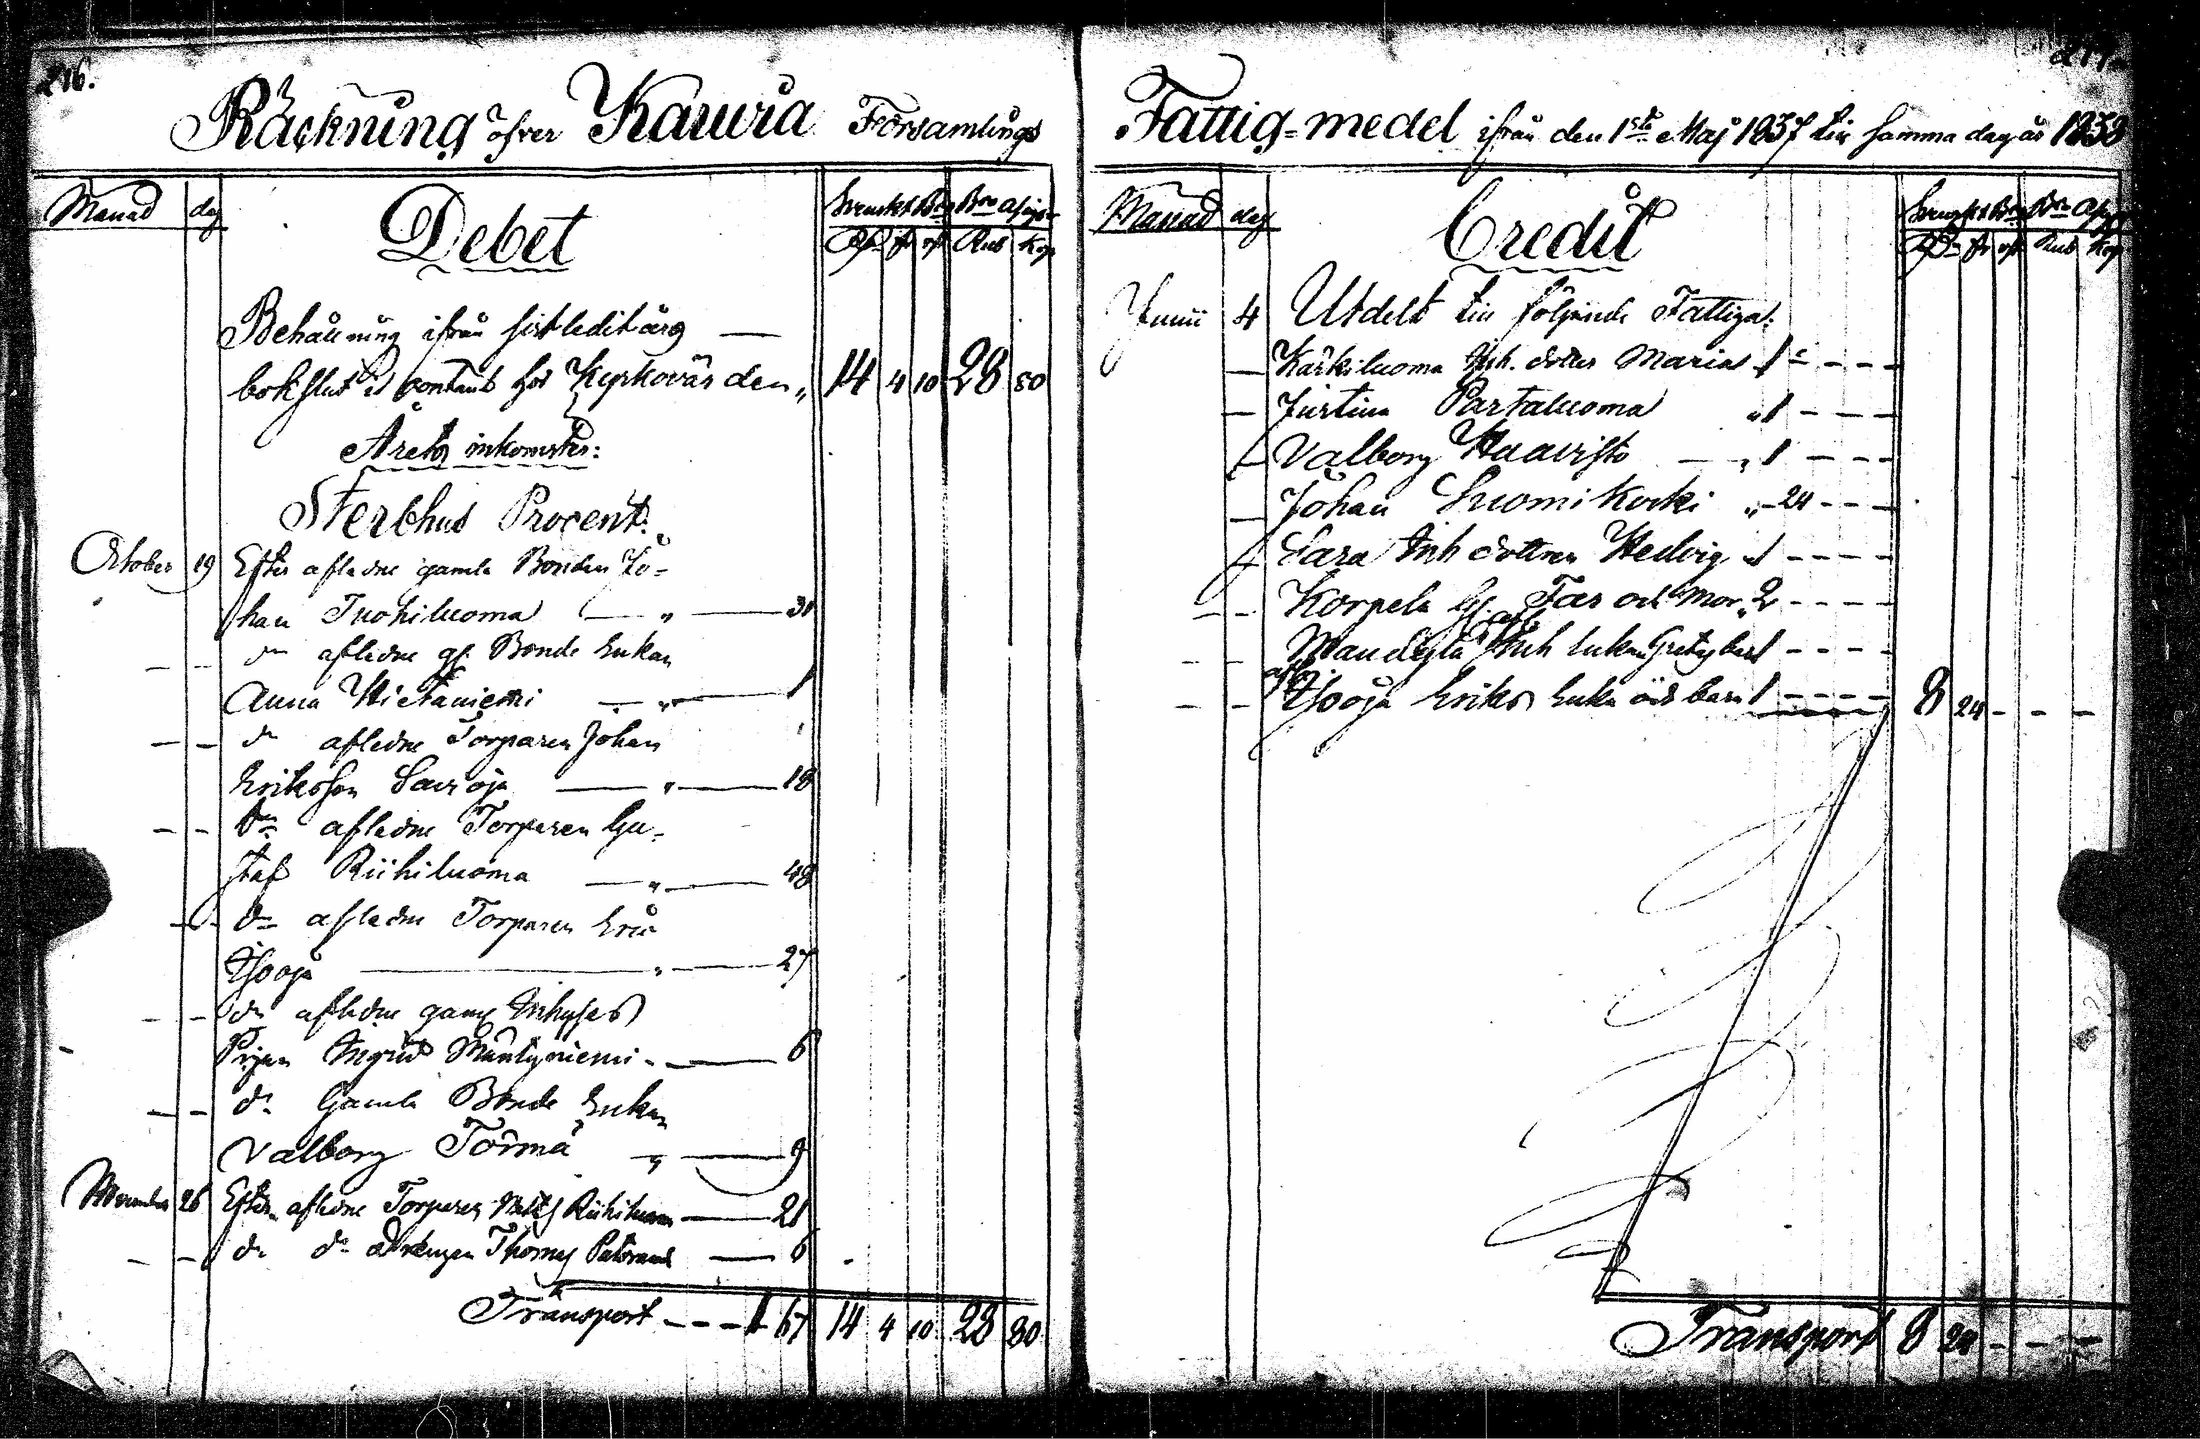 216.
Räckning öfver Kauvia Församlings
Månad dag Debet Svenskt Bco Bco Assign
Rd fs rst Rub Kop
Behållning ifrån sistledit års
bokslut är contant hos Kyrkovärden „ 14 4 10 28 80
Årets inkomster:
Sterbhus Procent:
October 19 Efter aflidne gamla Bonden Jo-
han Tuohiluoma — „ — 31
— — do aflidne gl. Bonde Enkan
Anna Hietaniemi — „ — 1
— — do aflidne Torparen Johan
Eriksson Savioja — „ — 18
— — do aflidne Torparen Gu-
staf Riihiluoma — „ — 48
— — do aflidne Torparen Eric
Ysooja — „ — 27
— — do aflidne gaml Inhyses
Pigan Ingrid Mäntyniemi - — 6
— — do Gamla Bonde Enkan
Valborg Törmä „ — 9
November 26 Efter aflidne Torparen Matts Riihiluoma — 21
— — do do Drengen Thomas — 6
Transport - - - 1 67 14 4 10 28 80
217.
Fattig-medel ifrån den 1sta Maj 1837 till samma dag år 1838
Månad dag Credit Svenskt Bco Bco Assign
Rd fs rst Rub Kop
Junii 4 Utdelt till följande Fattiga:
— Karkiluoma Inh. dotter Maria 1 - - - -
— Justina Partaluoma „ 1 - - -
— Valborg Haavisto — „ 1 - - - -
— Johan Luomikoski „ - 24 - - -
— Sara Inh dottren Hedvig „ 1 - - - -
— — Korpela Gl. Far och Mor „ 2 - - - -
— — Inh Enkan Gretas barn 1 - - - -
— — Ysooja Eriks Enka och barn 1 - - - - 8 24 - - - -
Transport 8 24 - - -